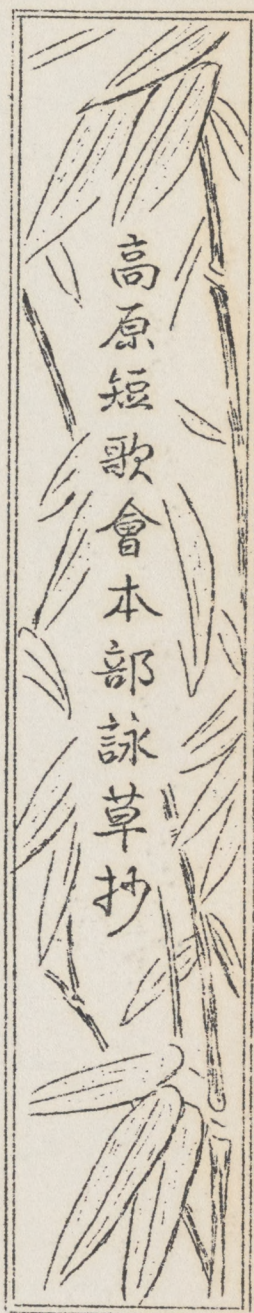 高原短歌會本部詠草抄